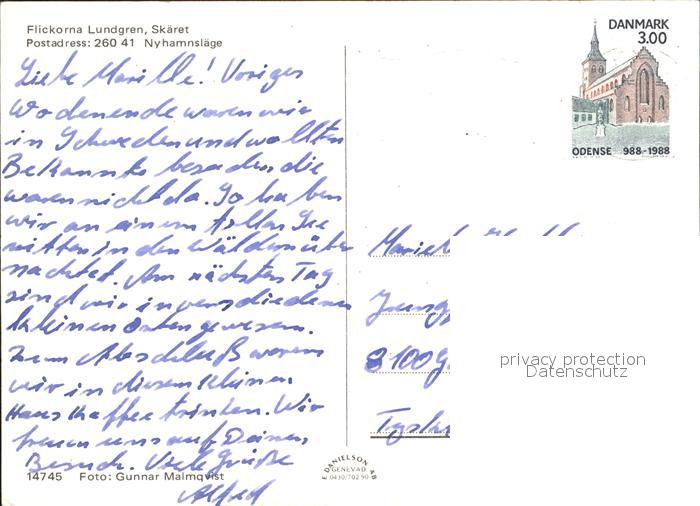 Flickorna Lundgren, Skäret
Postadress: 260 41 Nyhamnsläge
Liebe Marille! Voriges
Wochenende waren wir
in Schweden und wollten
Bekannte besuchen, die
waren nicht da. So haben
wir an einem tollen See
mitten in den Wäldern über
nachtet. Am nächsten Tag
sind wir in verschiedenen
kleinen Orten gewesen.
Zum Abschluß waren
wir in diesem kleinen
Haus Kaffee trinken. Wir
freuen uns auf Deinen
Besuch. Viele Grüße
Alfred
14745 Foto: Gunnar Malmqvist
E DANIELSON AB
GENEVAD
0430/702 90
DANMARK
3.00
ODENSE 988-1988
3100
privacy protection
Datenschutz